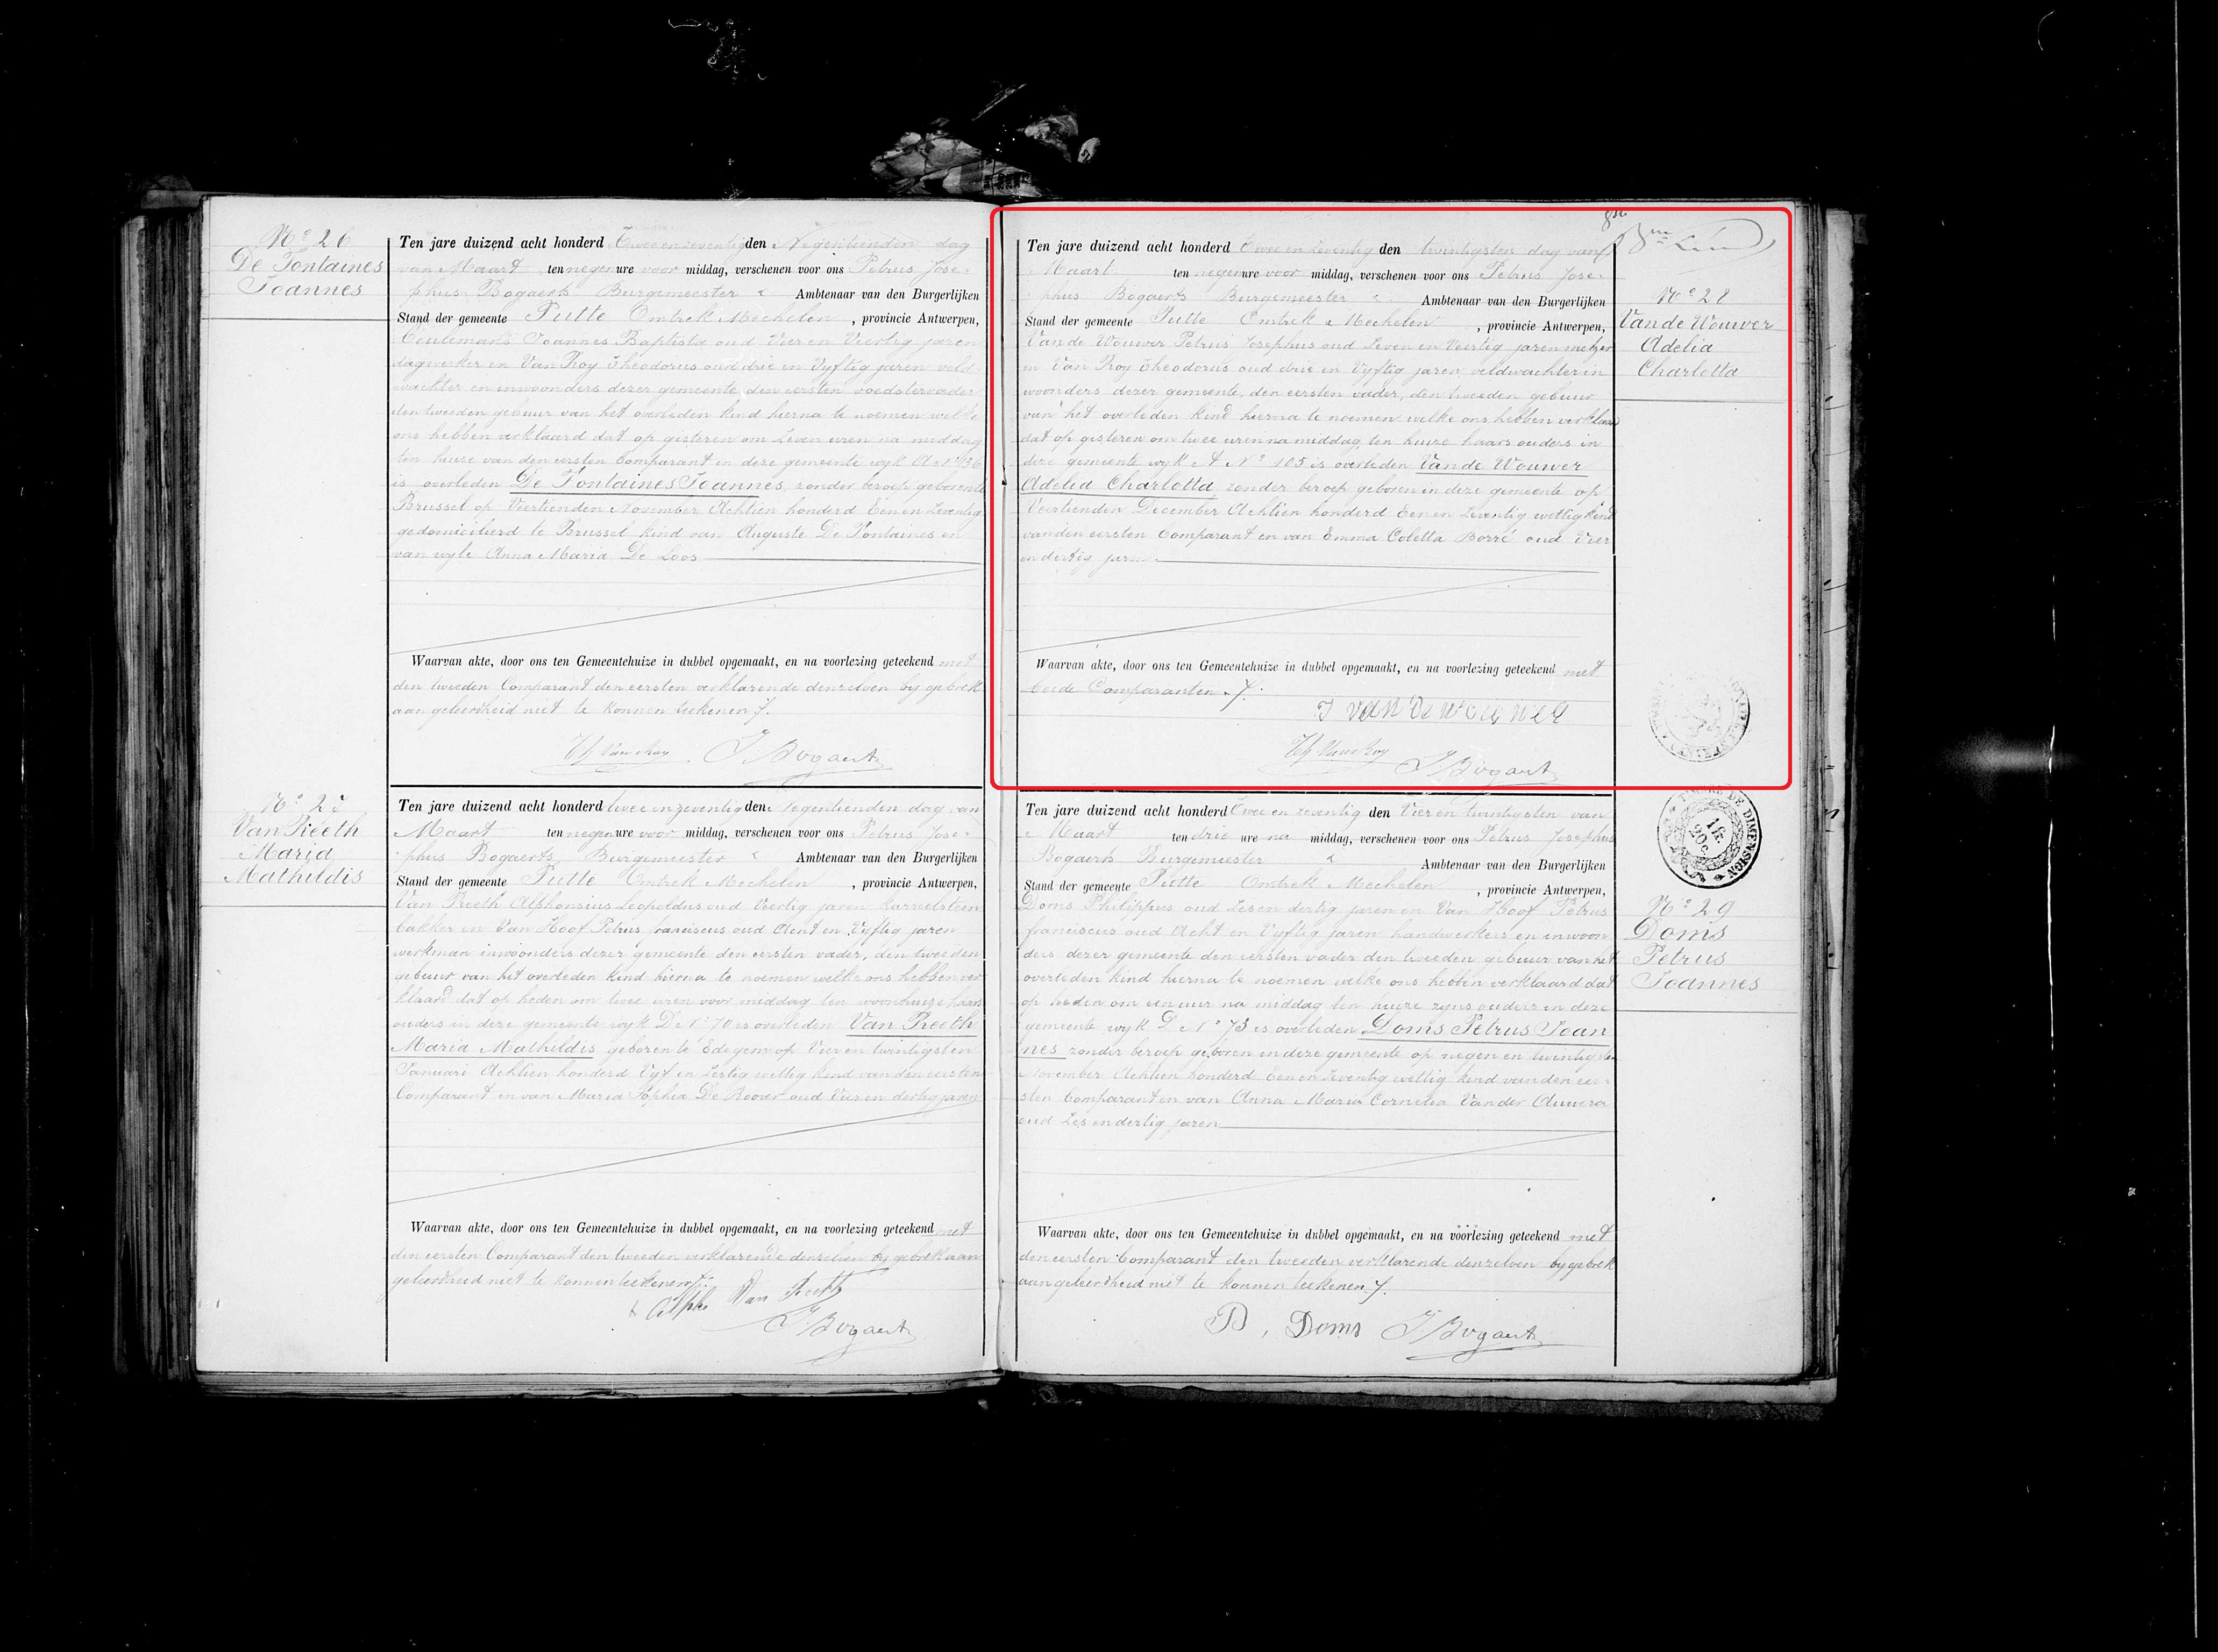 Nº 26
De Fontaines
Joannes
Ten jare duizend acht honderd Tweeenzeventig den Negentienden dag
van Maart ten negen ure voor middag, verschenen voor ons Petrus Jose-
phus Bogaerts Burgemeester Ambtenaar van den Burgerlijken
Stand der gemeente Putte Omtrek Mechelen , provincie Antwerpen,
Ceulemans Joannes Baptista oud Vier en Veertig jaren
dagwerker en Van Roy Theodorus oud drie en Vyftig jaren veld-
wachter en inwoonders dezer gemeente, den eersten voedstervader
den tweeden gebuur van het overleden kind hierna te noemen welke
ons hebben verklaard dat op gisteren om Zeven uren na middag
ten huize van den eersten Comparant in deze gemeente wyk A Nº 136
is overleden De Fontaines Joannes, zonder beroep geboren te
Brussel op Veertienden November Achtien honderd Een en Zeventig
gedomicilieerd te Brussel kind van Auguste De Fontaines en
van wyle Anna Maria De Loos
Waarvan akte, door ons ten Gemeentehuize in dubbel opgemaakt, en na voorlezing geteekend met
den tweeden Comparant den eersten verklarende denzelven by gebrek
aan geleerdheid niet te konnen teekenen ./.
Th Van Roy J Bogaert
Nº 27
Van Reeth
Maria
Mathildis
Ten jare duizend acht honderd twee en zeventig den Negentienden dag van
Maart ten negen ure voor middag, verschenen voor ons Petrus Jose-
phus Bogaerts Burgemeester Ambtenaar van den Burgerlijken
Stand der gemeente Putte Omtrek Mechelen , provincie Antwerpen,
Van Reeth Alphonsius Leopoldus oud Veertig jaren karreelsteen
bakker en Van Hoof Petrus franciscus oud Acht en Vyftig jaren
werkman inwoonders dezer gemeente den eersten vader, den tweeden
gebuur van het overleden kind hierna te noemen welke ons hebben ver
klaard dat op heden om twee uren voor middag ten woonhuize haars
ouders in deze gemeente wyk D Nº 70 is overleden Van Reeth
Maria Mathildis geboren te Edegem op Vier en twintigsten
Januari Achtien honderd Vyf en Zestig wettig kind van den eersten
Comparant en van Maria Sophia De Roover oud Vier en dertig jaren
Waarvan akte, door ons ten Gemeentehuize in dubbel opgemaakt, en na voorlezing geteekend met
den eersten Comparant den tweeden verklarende denzelven by gebrek aan
geleerdheid niet te konnen teekenen ./.
Alph Van Reeth
J Bogaert
Ten jare duizend acht honderd Twee en zeventig den twintigsten dag van
Maart ten negen ure voor middag, verschenen voor ons Petrus Jose-
phus Bogaerts Burgemeester Ambtenaar van den Burgerlijken
Stand der gemeente Putte Omtrek Mechelen , provincie Antwerpen,
Van de Wouwer Petrus Josephus oud Zeven en Veertig jaren metzer
en Van Roy Theodorus oud drie en Vyftig jaren veldwachter in
woonders dezer gemeente, den eersten vader, den tweeden gebuur
van het overleden kind hierna te noemen welke ons hebben verklaard
dat op gisteren om twee uren na middag, ten huize haars ouders in
deze gemeente wyk A Nº 105 is overleden Van de Wouwer
Adelia Charlotta, zonder beroep geboren in deze gemeente op
Veertienden December Achtien honderd Een en Zeventig wettig kind
van den eersten Comparant en van Emma Coletta Borré oud Vier
en dertig jaren
Waarvan akte, door ons ten Gemeentehuize in dubbel opgemaakt, en na voorlezing geteekend met
beide Comparanten ./.
J van de wouwer
Th Van Roy J Bogaert
Nº 28
Van de Wouwer
Adelia
Charlotta
Ten jare duizend acht honderd Twee en zeventig den Vier en twintigsten van
Maart ten drie ure na middag, verschenen voor ons Petrus Josephus
Bogaerts Burgemeester Ambtenaar van den Burgerlijken
Stand der gemeente Putte Omtrek Mechelen , provincie Antwerpen,
Doms Philippus oud Zes en dertig jaren en Van Hoof Petrus
franciscus oud Acht en Vyftig jaren, handwerkers en inwoon
ders dezer gemeente den eersten vader den tweeden gebuur van het
overleden kind hierna te noemen welke ons hebben verklaard dat
op heden om een uur na middag ten huize zyns ouders in deze
gemeente wyk D Nº 73 is overleden Doms Petrus Joan
nes zonder beroep geboren in deze gemeente op negen en twintigsten
November Achtien honderd Een en Zeventig wettig kind van den eer-
sten Comparant en van Anna Maria Cornelia Van der Auwera
oud Zes en dertig jaren
Waarvan akte, door ons ten Gemeentehuize in dubbel opgemaakt, en na voorlezing geteekend met
den eersten Comparant den tweeden verklarende denzelven by gebrek
aan geleerdheid niet te konnen teekenen ./.
P, Doms J Bogaert
TIMBRE DE DIMENSION
1 fr.
20 c.
Nº 29
Doms
Petrus
Joannes